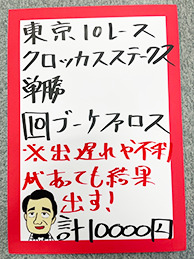 東京10レース
クロッカスステークス
単勝
10 ブーケファロス
※出遅れや不利
があっても結果
出す!
計10000円